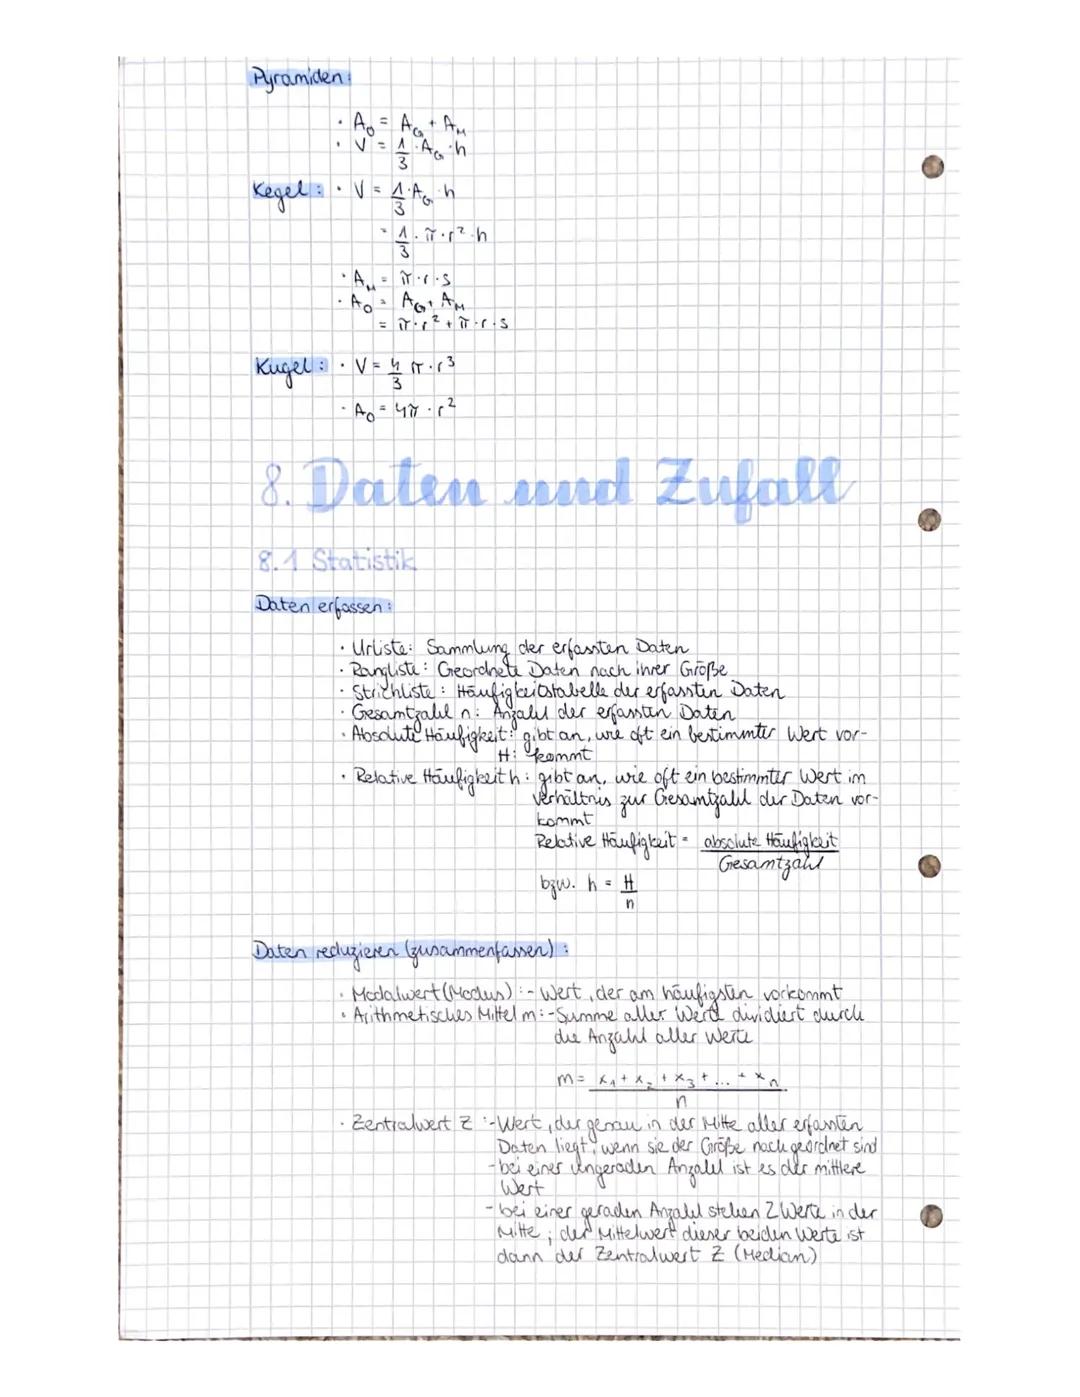 Pyramiden:
· A_O = A_G + A_M
· V = 1/3 · A_G · h
Kegel: · V = 1/3 · A_G · h
= 1/3 · π · r² · h
· A_M = π · r · s
· A_O = A_G + A_M
= π · r² + π · r · s
Kugel: · V = 4/3 π · r³
· A_O = 4π · r²
8. Daten und Zufall
8.1 Statistik
Daten erfassen:
· Urliste: Sammlung der erfassten Daten
· Rangliste: Geordnete Daten nach ihrer Größe
· Strichliste: Häufigkeitstabelle der erfassten Daten
· Gesamtzahl n: Anzahl der erfassten Daten
· Absolute Häufigkeit: gibt an, wie oft ein bestimmter Wert vor-
H: kommt
· Relative Häufigkeit h: gibt an, wie oft ein bestimmter Wert im
Verhältnis zur Gesamtzahl der Daten vor-
kommt
Relative Häufigkeit = absolute Häufigkeit / Gesamtzahl
bzw. h = H/n
Daten reduzieren (zusammenfassen):
· Modalwert (Modus): - Wert, der am häufigsten vorkommt
· Arithmetisches Mittel m: - Summe aller Werte dividiert durch
die Anzahl aller Werte
m = x₁ + x₂ + x₃ + ... + xₙ / n
· Zentralwert Z: - Wert, der genau in der Mitte aller erfassten
Daten liegt, wenn sie der Größe nach geordnet sind
- bei einer ungeraden Anzahl ist es der mittlere
Wert
- bei einer geraden Anzahl stehen 2 Werte in der
Mitte; der Mittelwert dieser beiden Werte ist
dann der Zentralwert Z (Median)